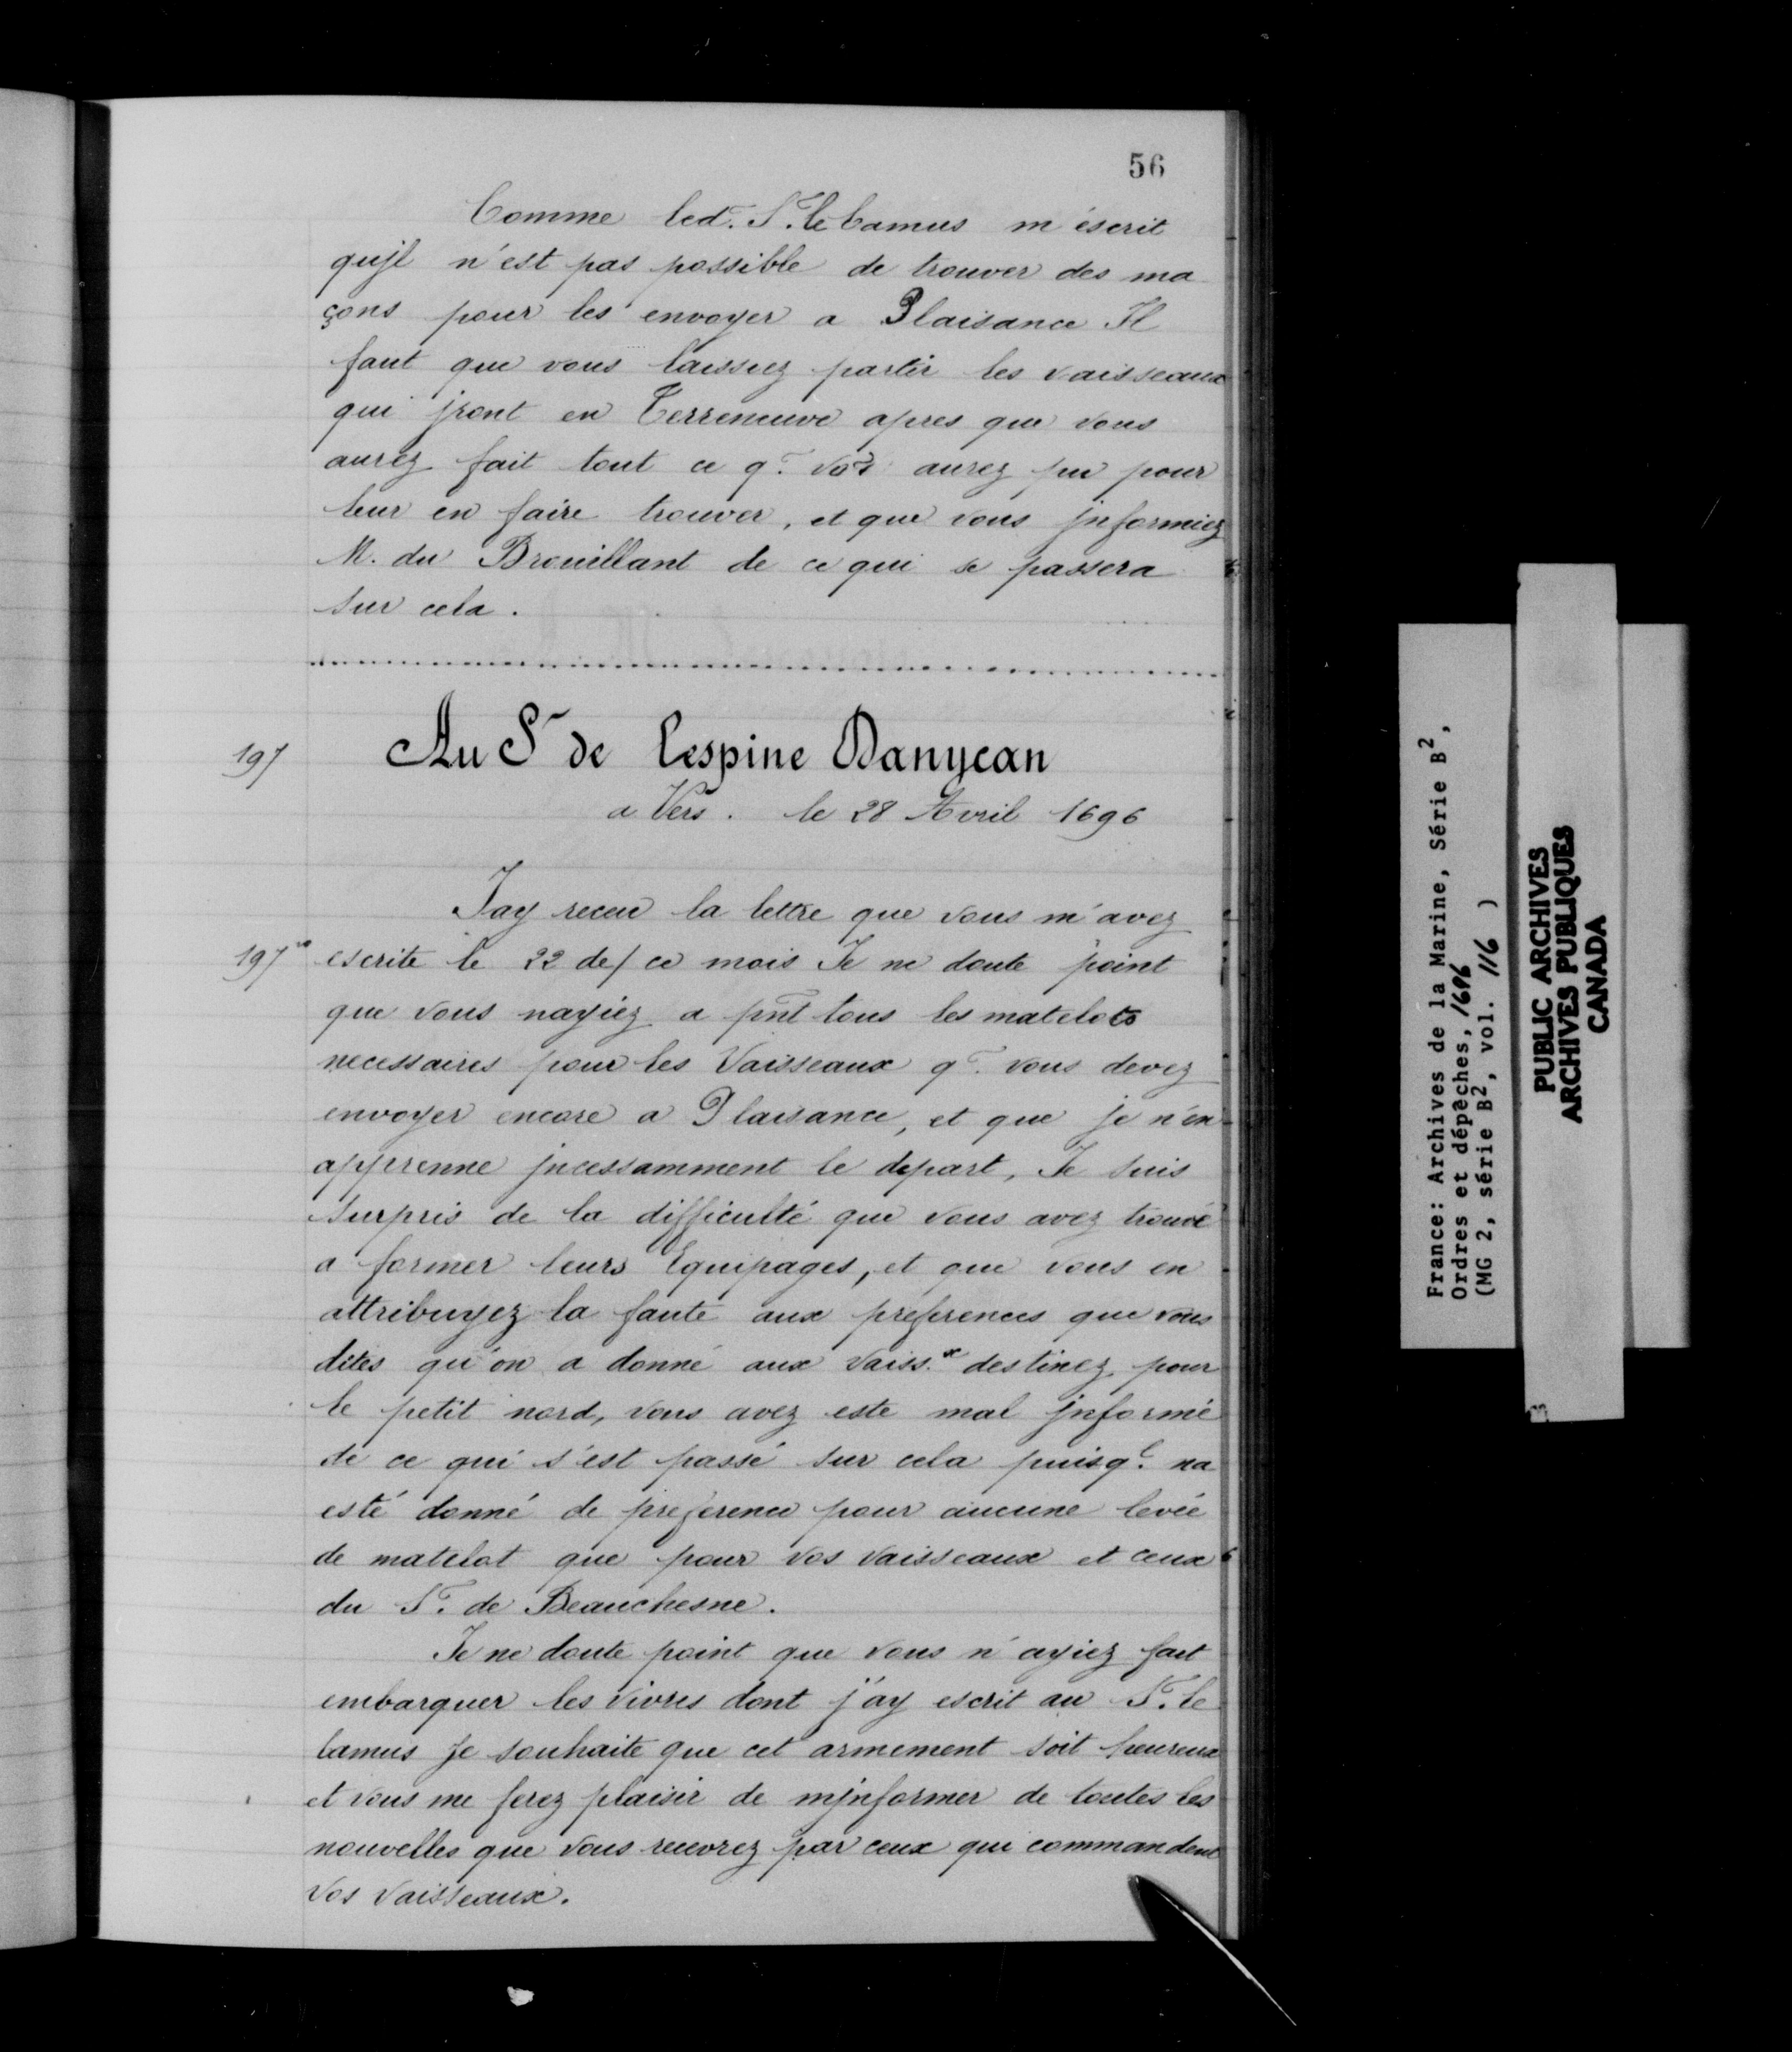 56
Comme led. Sr. le Camus m'éscrit
qujl n'est pas possible de trouver des ma
çons pour les envoyer a Plaisance Il
faut que vous laissiez partir les vaisseaux
qui jront en Terreneuve apres que vous
aurez fait tout ce q̃. voꝰ aurez pu pour
leur en faire trouver, et que vous jnformiez
M. du Brouillant de ce qui se passera
sur cela.
197
Au Sr de Lespine Danycan
a Vers. le 28 Avril 1696
Jay receu la lettre que vous m'avez
197vo
escrite le 22 de/ce mois Je ne doute point
que vous nayiez a pñt tous les matelots
necessaires pour les Vaisseaux q̃. vous devez
envoyer encore a Plaisance, et que je n'en
apprenne jncessamment le depart, Je suis
surpris de la difficulté que vous avez trouvé
a former leurs Equipages, et que vous en
attribuyez la faute aux preferences que vous
dites qu'on a donné aux vaiss.x destinez pour
le petit nord, vous avez este mal jnformé
de ce qui s'est passé sur cela puisq.l na
esté donné de preference pour aucune levée
de matelot que pour vos vaisseaux et ceux
du Sr. de Beauchesne.
Je ne doute point que vous n'ayiez fait
embarquer les vivres dont j'ay escrit au Sr. le
Camus je souhaite que cet armement soit heureux
et vous me ferez plaisir de mjnformer de toutes les
nouvelles que vous recevrez par ceux qui commandent
vos vaisseaux.
France: Archives de la Marine, Série B2,
Ordres et dépêches, 1696
(MG 2, série B2, vol. 116 )
PUBLIC ARCHIVES
ARCHIVES PUBLIQUES
CANADA